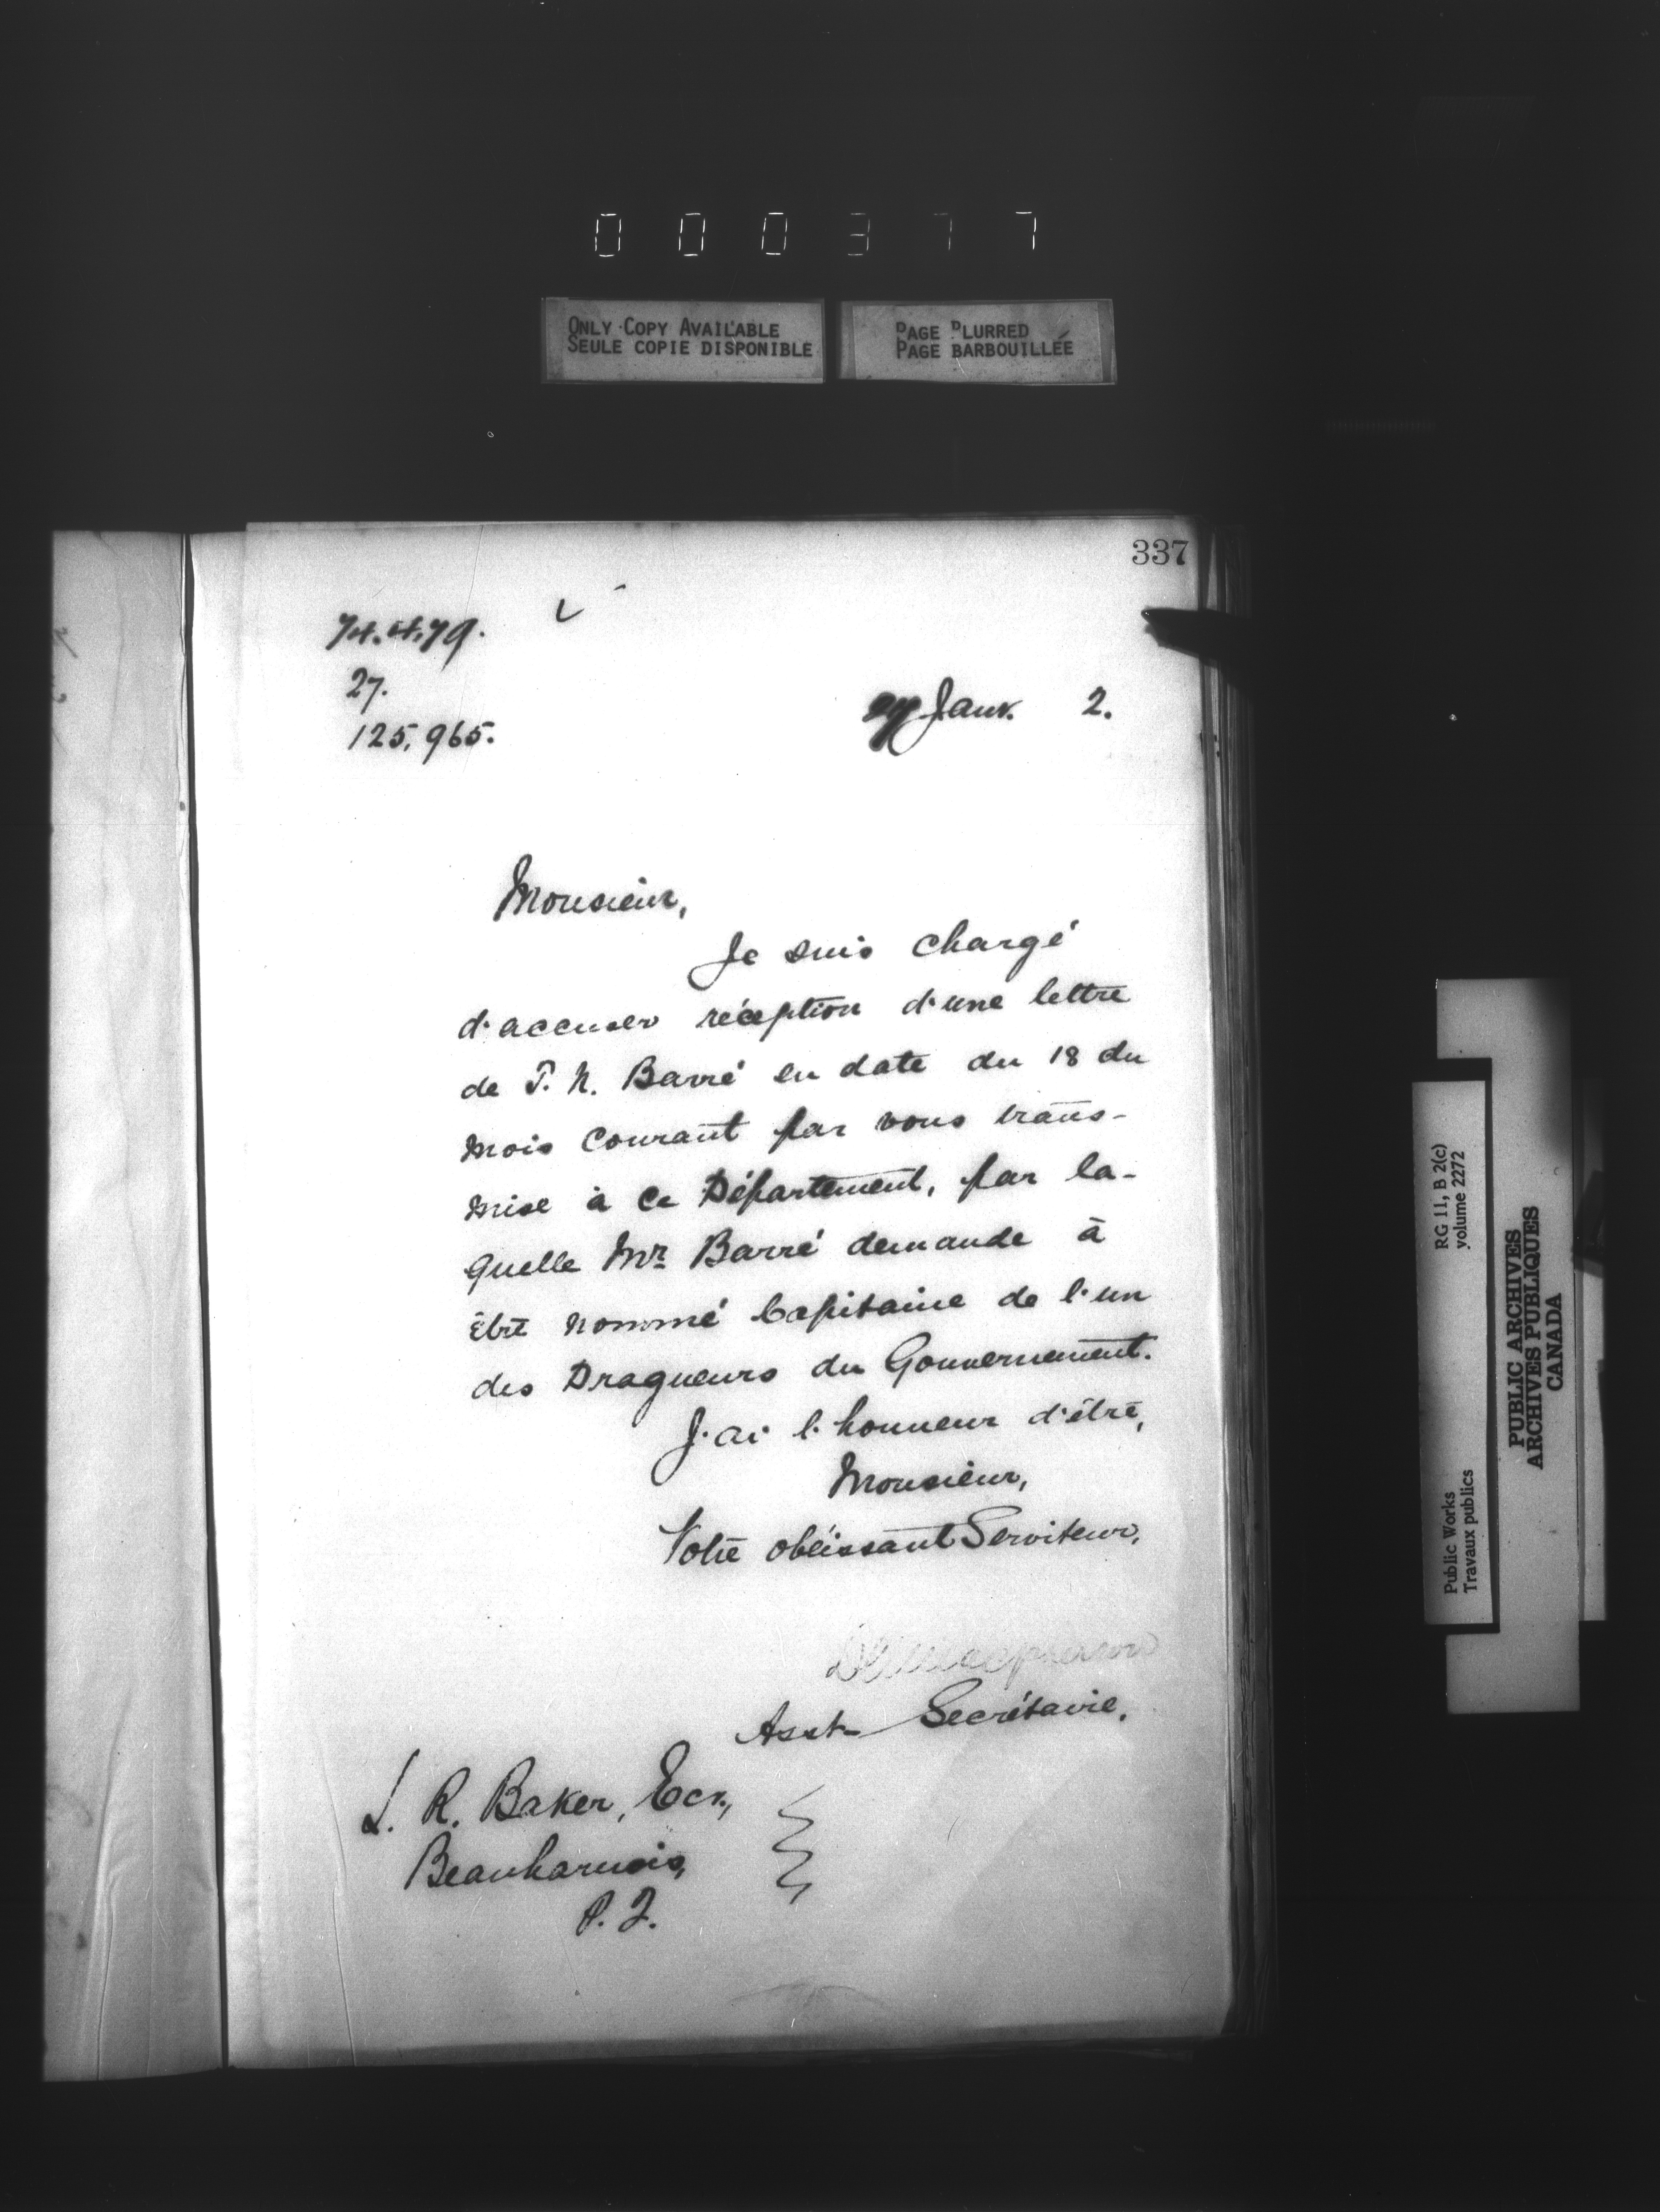 000377
ONLY COPY AVAILABLE
SEULE COPIE DISPONIBLE
PAGE BLURRED
PAGE BARBOUILLÉE
337
27.
125,965.
27 Janv. 2.
Monsieur,
Je suis chargé
d'accuser réception d'une lettre
de P. N. Barré en date du 18 du
mois courant par vous trans-
mise à ce Département, par la-
quelle Mr. Barré demande à
être nommé Capitaine de l'un
des Dragueurs du Gouvernement.
J'ai l'honneur d'être,
Monsieur,
Votre obéissant Serviteur,
Asst. Secrétaire.
L. R. Baker, Ecr.,
Beauharnois,
P. Q.
RG 11, B 2(c)
volume 2272
Public Works
Travaux publics
PUBLIC ARCHIVES
ARCHIVES PUBLIQUES
CANADA